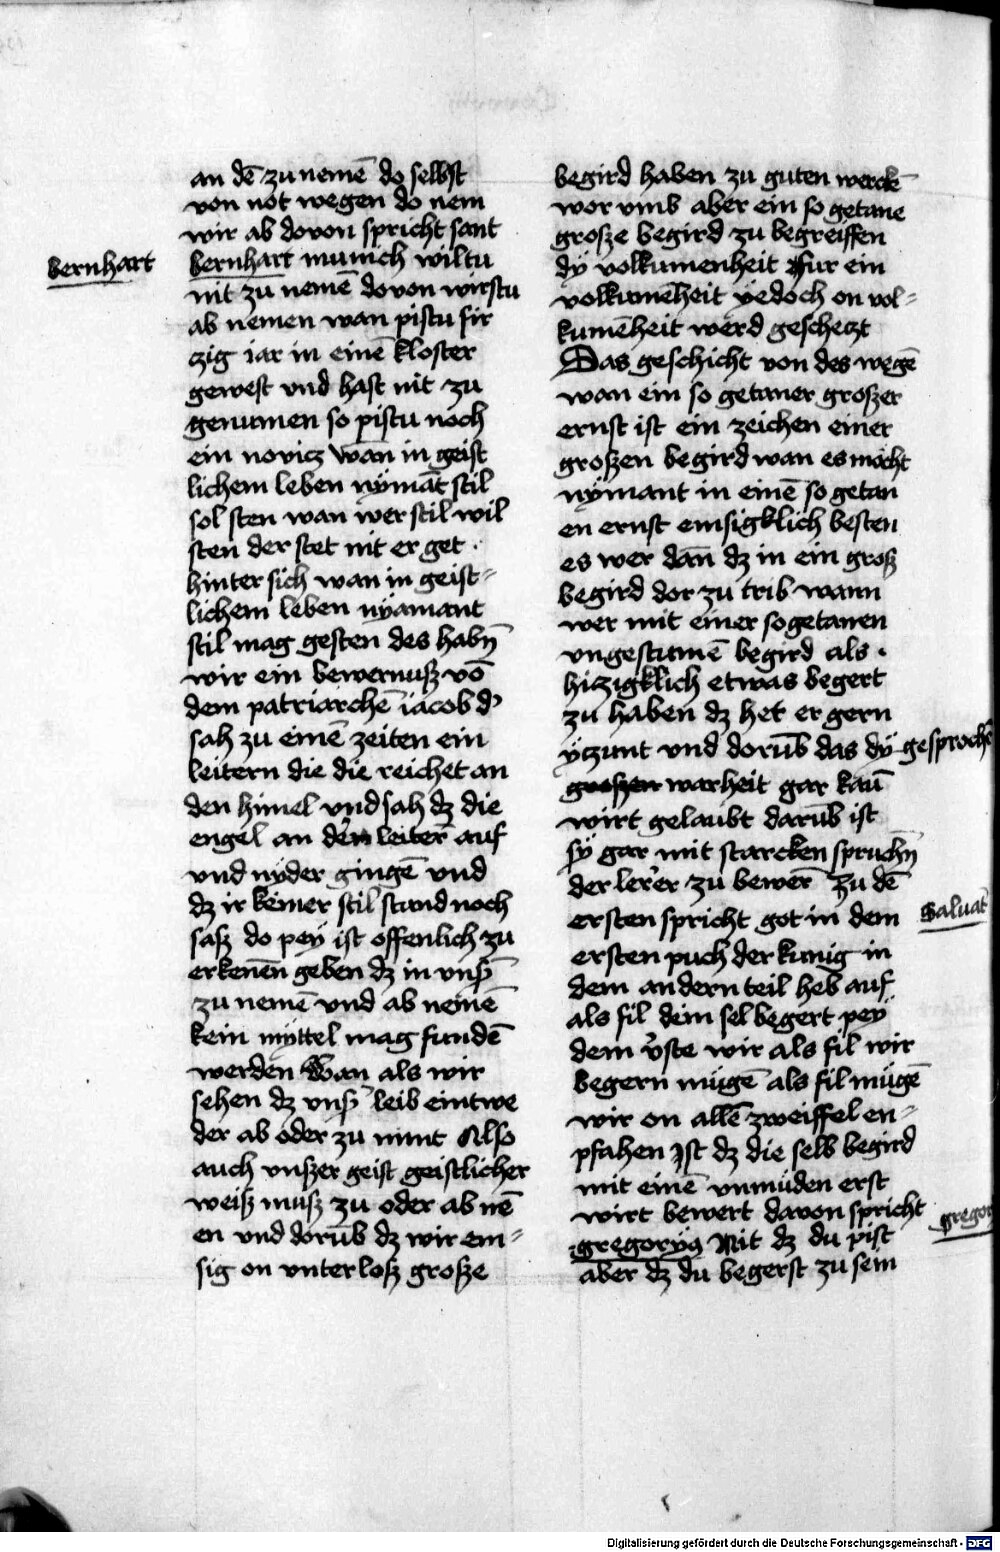 an dē zu nemē do selbst
von not wegen do nem
wir ab dovon spricht sant
bernhart
bernhart munich wiltu
nit zu nemē dovon wirstu
ab nemen wan pistu fir
czig iar in einē kloster
gewest vnd hast nit zu
genumen so pistu noch
ein novicz wan in geist
lichem leben nÿmāt stil
sol sten wan wer stil wil
sten der stet nit er get ·
hinter sich wan in geist=
lichem leben nÿamant
stil mag gesten des habn̄
wir ein bewernusz vō
dem patriarchē iacob d'
sah zu einē zeiten ein
leitern die die reichet an
den himel vnd sah dz die
engel an der leiter auf
vnd nÿder gingē vnd
dz ir keiner stil stund noch
sasz do peÿ ist offenlich zu
erkenēn geben dz in vnsz̄
zu nemē vnd ab nemē
kein mÿttel mag fundē
werden Wan als wir
sehen dz vnsz̄ leib eintwe
der ab oder zu nimt Also
auch vnszer geist geistlicher
weisz musz zu oder ab nē
en vnd dorūb dz wir em=
sig on vnterlosz grosze
begird haben zu guten werckē
wor vmb aber ein so getane
grosze begird zu begreiffen
dÿ volkumenheit fur ein
volkumēheit ÿedoch on vol=
kumēheit werd gescheczt
Das geschicht von des wegē
wan ein so getaner groszer
ernst ist ein zeichen einer
groszen begird wan es mocht
nÿmant in einē so getan
en ernst emsigklich besten
es wer dan̄ dz in ein grosz
begird dor zu trib wann
wer mit einer sogetanen
vngestumē begird als ·
hiczigklich etwas begert
zu haben dz het er gern
ÿczunt vnd dorūb das dÿ gesprochē
groszen warheit gar kaū
wirt gelaubt darūb ist
sÿ gar mit starcken spruchn̄
der lerer zu bewer̄ Zu dē
ersten spricht got in dem
Saluat
ersten puch der kunig in
dem andern teil heb auf
als fil dein sel begert peÿ
dem v̓ste wir als fil wir
begern mügē als fil mügē
wir on allē zweiffel en=
pfahen Ist dz die selb begird
mit einē vnmuden erst
wirt bewert davon spricht
gregor
gregoryus Nit dz du pist
aber dz du begerst zu sein
Digitalisierung gefördert durch die Deutsche Forschungsgemeinschaft - DFG